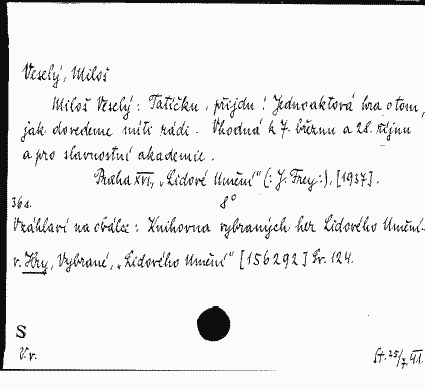 Veselý, Miloš
Miloš Veselý: Tatíčku, přijdu! Jednoaktová hra o tom,
jak dovedeme míti rádi. Vhodná k 7. březnu a 28. říjnu
a pro slavnostní akademie.
Praha XVI, „Lidové Umění" (: J. Frey:), [1937].
36 s. 8°
V záhlaví na obálce: Knihovna vybraných her Lidového Umění.
v. Hry, Vybrané, „Lidového Umění" [156292] Sv. 124.
S
V. v. St. 25/7. 41.